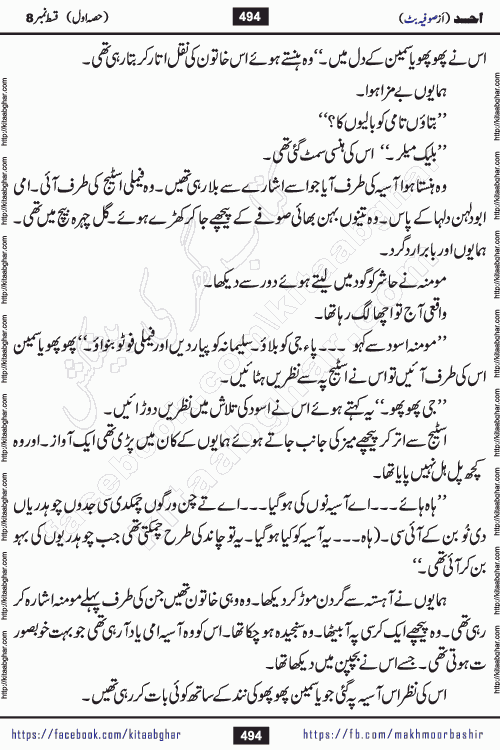 احد (از صوفیہ بٹ)
494
(حصہ اول) قسط نمبر 8
اس نے پھوپھو یاسمین کے دل میں۔‘‘ وہ ہنستے ہوئے اس خاتون کی نقل اتار کر بتا رہی تھی۔
ہمایوں بے مزا ہوا۔
’’بتاؤں تامی کو بالیوں کا؟‘‘
’’بلیک میلر۔‘‘ اس کی ہنسی سمٹ گئی تھی۔
وہ ہنستا ہوا آسیہ کی طرف آیا جو اسے اشارے سے بلا رہی تھیں۔ وہ فیملی اسٹیج کی طرف آئی۔ امی
ابو دلہن دلہا کے پاس۔ وہ تینوں بہن بھائی صوفے کے پیچھے جا کر کھڑے ہوئے۔ گل چہرہ بیچ میں تھی۔
ہمایوں اور بابر اردگرد۔
مومنہ نے حاشر کو گود میں لیتے ہوئے دور سے دیکھا۔
واقعی آج تو اچھا لگ رہا تھا۔
’’مومنہ اسود سے کہو ۔۔۔۔ پاء جی کو بلاؤ۔ سلیمانہ کو پیار دیں اور فیملی فوٹو بنواؤ۔‘‘ پھوپھو یاسمین
اس کی طرف آئیں تو اس نے اسٹیج پہ سے نظریں ہٹائیں۔
’’جی پھوپھو۔‘‘ یہ کہتے ہوئے اس نے اسود کی تلاش میں نظریں دوڑائیں۔
اسٹیج سے اتر کر پیچھے میز کی جانب جاتے ہوئے ہمایوں کے کان میں پڑی تھی ایک آواز۔ اور وہ
کچھ پل ہل نہیں پایا تھا۔
’’ہاہ ہائے۔۔۔ اے آسیہ نوں کی ہو گیا۔۔۔ اے تے چن ورگوں چمکدی سی جدوں چوہدریاں
دی نُو بن کے آئی سی۔ (ہاہ۔۔۔ یہ آسیہ کو کیا ہو گیا۔ یہ تو چاند کی طرح چمکتی تھی جب چوہدریوں کی بہو
بن کر آئی تھی۔‘‘
ہمایوں نے آہستہ سے گردن موڑ کر دیکھا۔ وہ وہی خاتون تھیں جن کی طرف پہلے مومنہ اشارہ کر
رہی تھی۔ وہ پیچھے ایک کرسی پہ آ بیٹھا۔ وہ سنجیدہ ہو چکا تھا۔ اس کو وہ آسیہ امی یاد آ رہی تھی جو بہت خوبصور
ت ہوتی تھی۔ جسے اس نے بچپن میں دیکھا تھا۔
اس کی نظر اس آسیہ پہ گئی جو یاسمین پھوپھو کی نند کے ساتھ کوئی بات کر رہی تھیں۔
http://kitaabghar.com
کتاب گھر کی پیشکش
facebook.com/kitaabghar
kitaabghar.com
https://facebook.com/kitaabghar
494
https://fb.com/makhmoorbashir